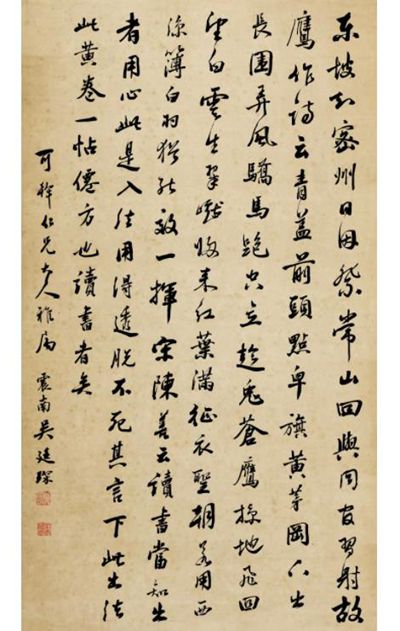 東坡知密州日因祭常山回與同官習射放
鷹作詩云青蓋前頭點皁旗黃茅岡下出
長圍弄風驕馬跑空立趁兔蒼鷹掠地飛回
望白雲生翠巘歸來紅葉滿征衣聖朝若用西
涼簿白羽猶能效一揮宋陳善云讀書當知出
者用心此是入法用得透脫不死其言下此出法
此黃卷一帖僊方也讀書者矣
可仁兄大人雅屬 震南吳廷琛